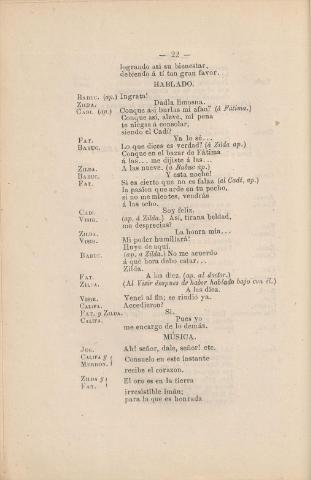 — 22 —
logrando así su bienestar,
debiendo á tí tan gran favor.
HABLADO.
BABUC. (ap.) Ingrata!
ZILDA. Dadla limosna.
CADÍ. (ap.) Conque así burlas mi afan? (á Fátima.)
Conque así, aleve, mi pena
te niegas á consolar,
siendo el Cadí?
FAT. Ya lo sé...
BABUC. Lo que dices es verdad? (á Zilda ap.)
Conque en el bazar de Fátima
á las... me dijiste á las...
ZILDA. A las nueve. (á Babuc ap.)
BABUC. Y esta noche!
FAT. Si es cierto que no es falaz (al Cadí, ap.)
la pasion que arde en tu pecho,
si no me mientes, vendrás
á las ocho.
CADÍ. Soy feliz.
VISIR. (ap. á Zilda.) Así, tirana beldad,
me desprecias?
ZILDA. La honra mia...
VISIR. Mi poder humillará!
Huye de aquí.
BABUC. (ap. a Zilda.) No me acuerdo
á qué hora debo estar...
Zilda.
FAT. A las diez. (ap. al doctor.)
ZILDA. (Al Visir despues de haber hablado bajo con él.)
A las diez.
VISIR. Vencí al fin; se rindió ya.
CALIFA. Accedieron?
FAT. y ZILDA. Sí.
CALIFA. Pues yo
me encargo de lo demás.
MÚSICA.
JOS. Ah! señor, dale, señor! etc.
CALIFA y Consuelo en este instante
MEBROU.
recibe el corazon.
ZILDA y El oro es en la tierra
FAT.
irresistible iman;
para la que es honrada